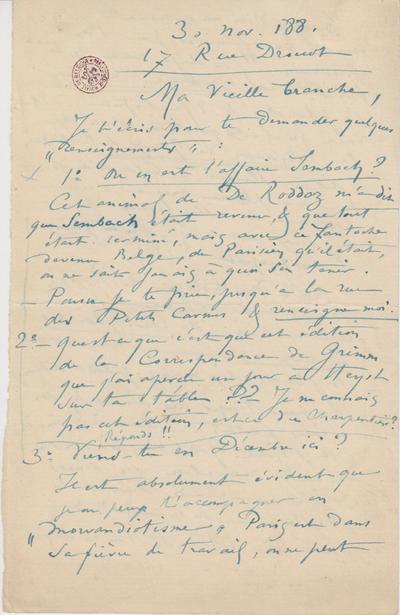 30 nov. 188.
17 Rue Drouot
Ma Vieille branche,
Je t'écris pour te demander quelques
"renseignements" :
1° Où en est l'affaire Sembach ?
Cet animal de De Roddaz m'a dit
que Sembach était revenu, & que tout
était terminé, mais avec ce fantoche
devenu Belge, de Parisien qu'il était,
on ne sait jamais à quoi s'en tenir.
Pousse je te prie, jusqu'à la rue
des Petits Carmes & renseigne moi.
2° — Qu'est-ce que c'est que cet édition
de la Correspondance de Grimm
que j'ai aperçu un jour à Heyst
sur ta table ?? — Je ne connais
pas cet éditeur, est-ce du Charpentier ?
Réponds !!
3° Viens-tu en Décembre ici ?
Il est absolument évident que
je ne peux t'accompagner en
"morvandiotisme" Paris est dans
sa fièvre de travail, on ne peut